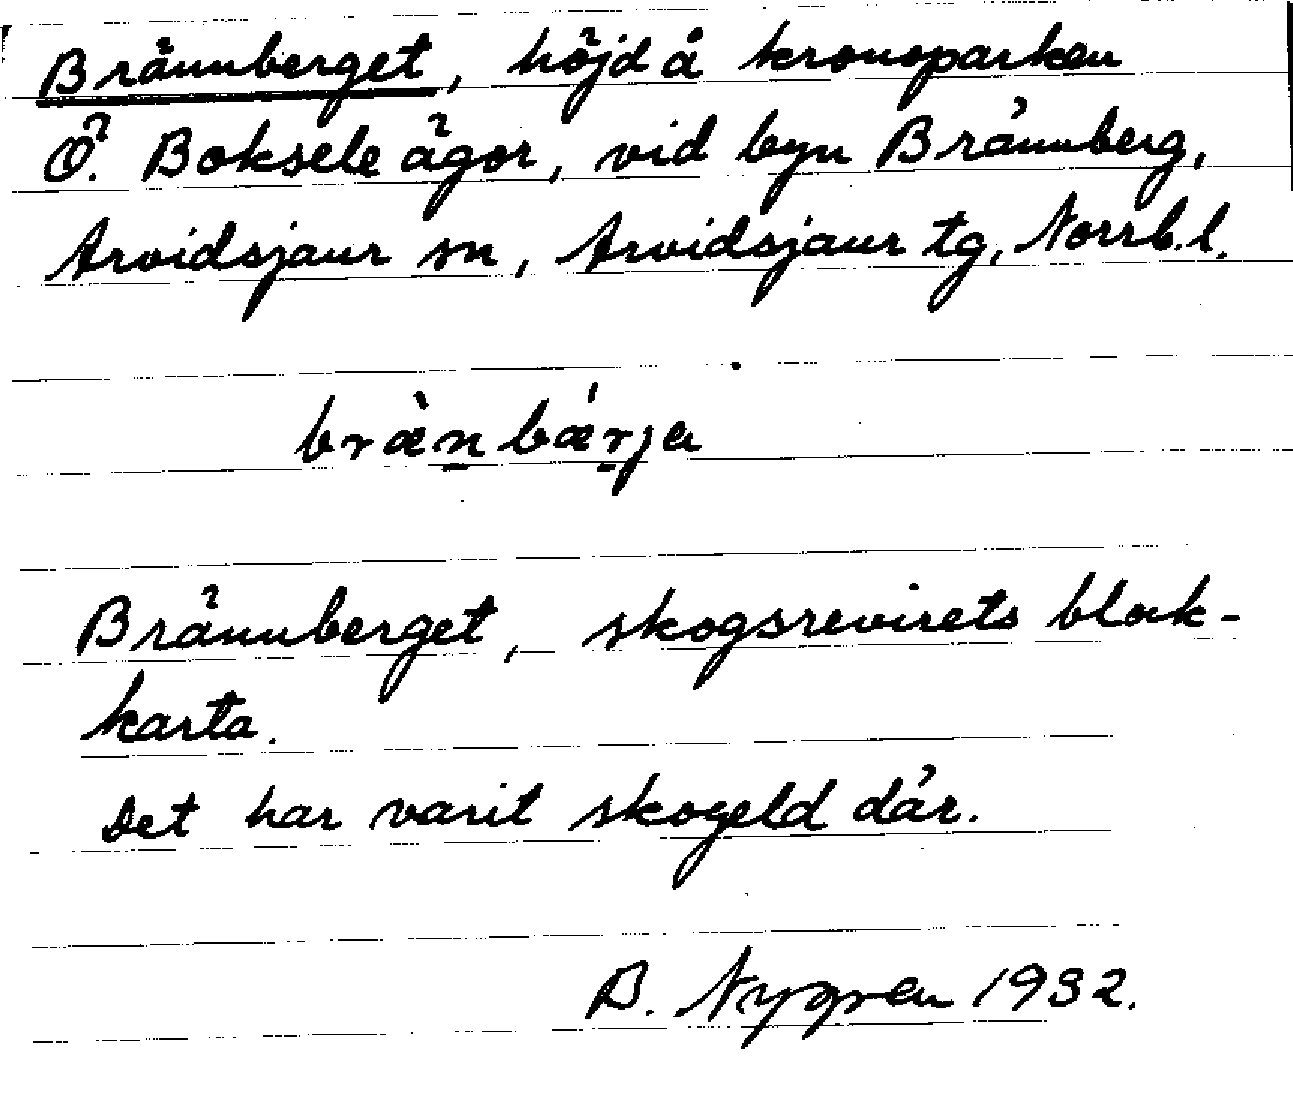 Brännberget, höjd å kronoparken
Ö. Boksele ägor, vid byn Brännberg,
Arvidsjaur sn, Arvidsjaur tg, Norrb.l.
bræ̀n̲bǽr̲ja
Brännberget, skogsrevirets block-
karta.
Det har varit skogeld där.
B. Nygren 1932.